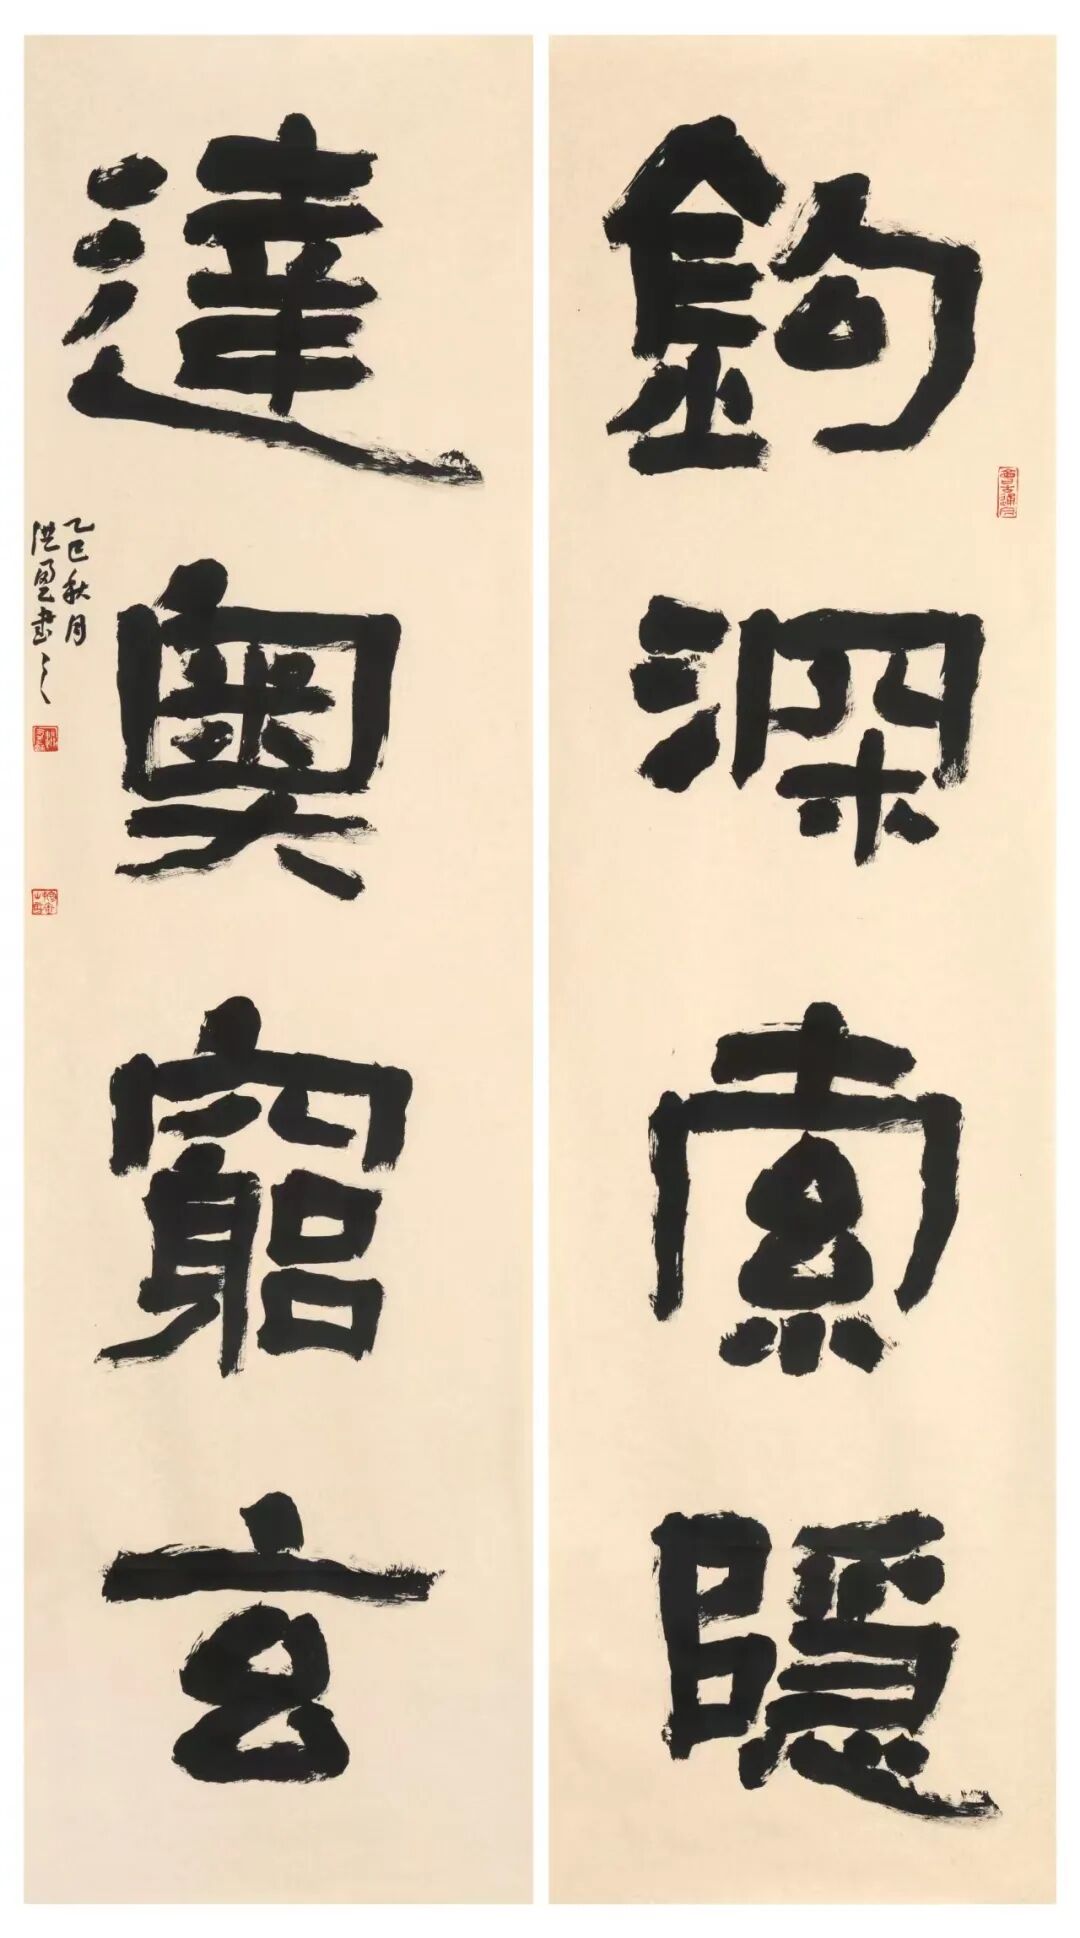 鈎深索隱
達奧窮玄
乙巳秋月
洪亮書之